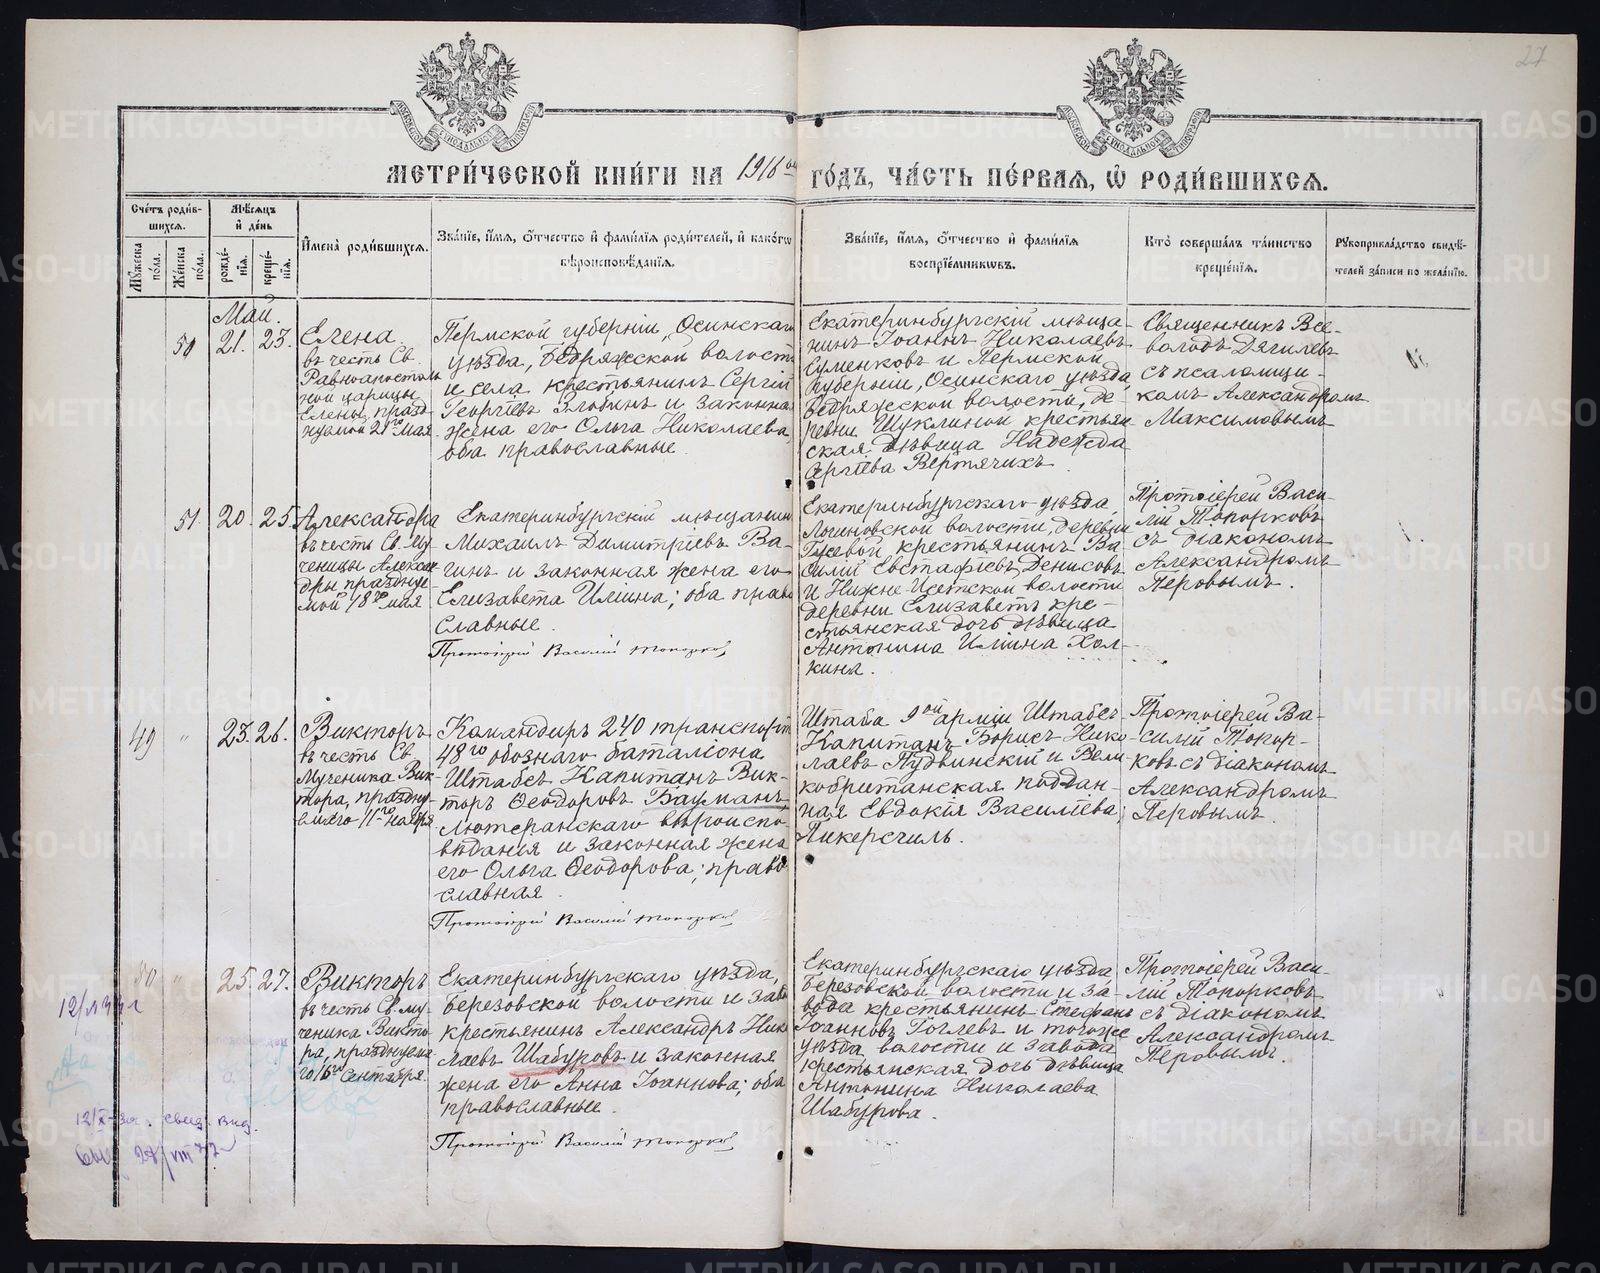 27
МОСКОВСКОЙ СѴНОДАЛЬНОЙ ТИПОГРАФІИ
МОСКОВСКОЙ СѴНОДАЛЬНОЙ ТИПОГРАФІИ
МЕТРИ́ЧЕСКОЙ КНИ́ГИ НА 1916 ый ГО́ДЪ, ЧА́СТЬ ПЕ́РВАЯ, Ѡ РОДИ́ВШИХСЯ.
Сче́тъ роди́в-
шихся.
Мѣ́сяцъ
и҆ де́нь
Мꙋ́жеска по́ла.
Же́нска по́ла.
рожде́-нїѧ.
креще́-нїѧ.
И҆мена̀ роди́вшихсѧ.
Зва́нїе, и҆́мѧ, ѻ҆́тчество и҆ фами́лїѧ роди́телей, и҆ како́гѡ
вѣроисповѣ́данїѧ.
Зва́нїе, и҆́мѧ, ѻ҆́тчество и҆ фами́лїѧ
воспрїе́мникѡвъ.
Кто̀ соверша́лъ та́инство
креще́нїѧ.
Рꙋкоприкла́дство свидѣ́-
телей за́писи по жела́нїю.
Май.
50 21. 23.
Елена
въ честь Св.
Равноапостоль
ной царицы
Елены, празд
нуемой 21го мая
Пермской губерніи, Осинскаго
уѣзда, Бедряжской волости
и села крестьянинъ Сергій
Георгіевъ Злобинъ и законная
жена его Ольга Николаева,
оба православные.
Екатеринбургскій мѣща-
нинъ Іоаннъ Николаевъ
Суменковъ и Пермской
губерніи, Осинскаго уѣзда,
Бедряжской волости, де-
ревни Шуклиной крестьян
ская дѣвица Надежда
Сергіева Вертячихъ.
Священникъ Все-
володъ Дягилевъ
съ псаломщи-
комъ Александромъ
Максимовымъ
51 20. 25.
Александра
въ честь Св. Му-
ченицы Алексан
дры празднуе
мой 18го мая
Екатеринбургскій мѣщанинъ
Михаилъ Димитріевъ Ва-
гинъ и законная жена его
Елизавета Ильина; оба право
славные.
Протоіерей Василій Топорковъ
Екатеринбургскаго уѣзда,
Логиновской волости, деревни
Гусевой крестьянинъ Ва-
силій Евстафіевъ Денисовъ
и Нижне-Исетской волости
деревни Елизаветъ кре-
стьянская дочь дѣвица
Антонина Ильина Хол-
кина.
Протоіерей Васи-
лій Топорковъ
съ діакономъ
Александромъ
Перовымъ.
49 " 23. 26.
Викторъ
въ честь Св.
Мученика Вик-
тора, праздну-
емаго 11го ноября
Командиръ 240 транспорта
48го обознаго баталіона
Штабсъ Капитанъ Вик-
торъ Ѳеодоровъ Бауманъ
лютеранскаго вѣроиспо
вѣданія и законная жена
его Ольга Ѳеодорова; право
славная.
Протоіерей Василій Топорковъ
Штаба 9ой арміи Штабсъ
Капитанъ Борисъ Нико-
лаевъ Пудвинскій и Вели
кобританская поддан-
ная Евдокія Василіева
Пикерсгиль.
Протоіерей Ва-
силій Топор-
ковъ съ діакономъ
Александромъ
Перовымъ.
50 " 25. 27.
Викторъ
въ честь Св. му-
ченика Викто-
ра, празднуема
го 16го Сентября.
Екатеринбургскаго уѣзда,
Березовской волости и заво
крестьянинъ Александръ Ник
лаевъ Шабуровъ и законная
жена его Анна Іоаннова; оба
православные.
Протоіерей Василій Топорковъ
Екатеринбургскаго уѣзда
Березовской волости и за-
вода крестьянинъ Стефанъ
Іоанновъ Гоглевъ и тогоже
уѣзда, волости и завода
крестьянская дочь дѣвица
Антонина Николаева
Шабурова.
Протоіерей Васи-
лій Топорковъ
съ діакономъ
Александромъ
Перовымъ.
METRIKI.GASO-URAL.RU